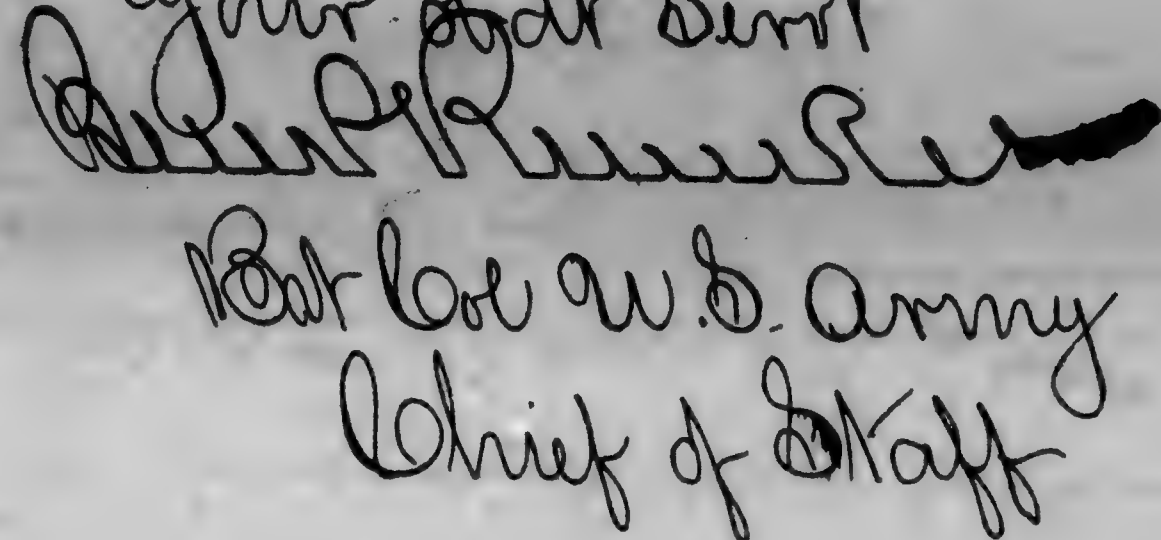 Your Obdt Servt
Bvt Col U.S. Army
Chief of Staff